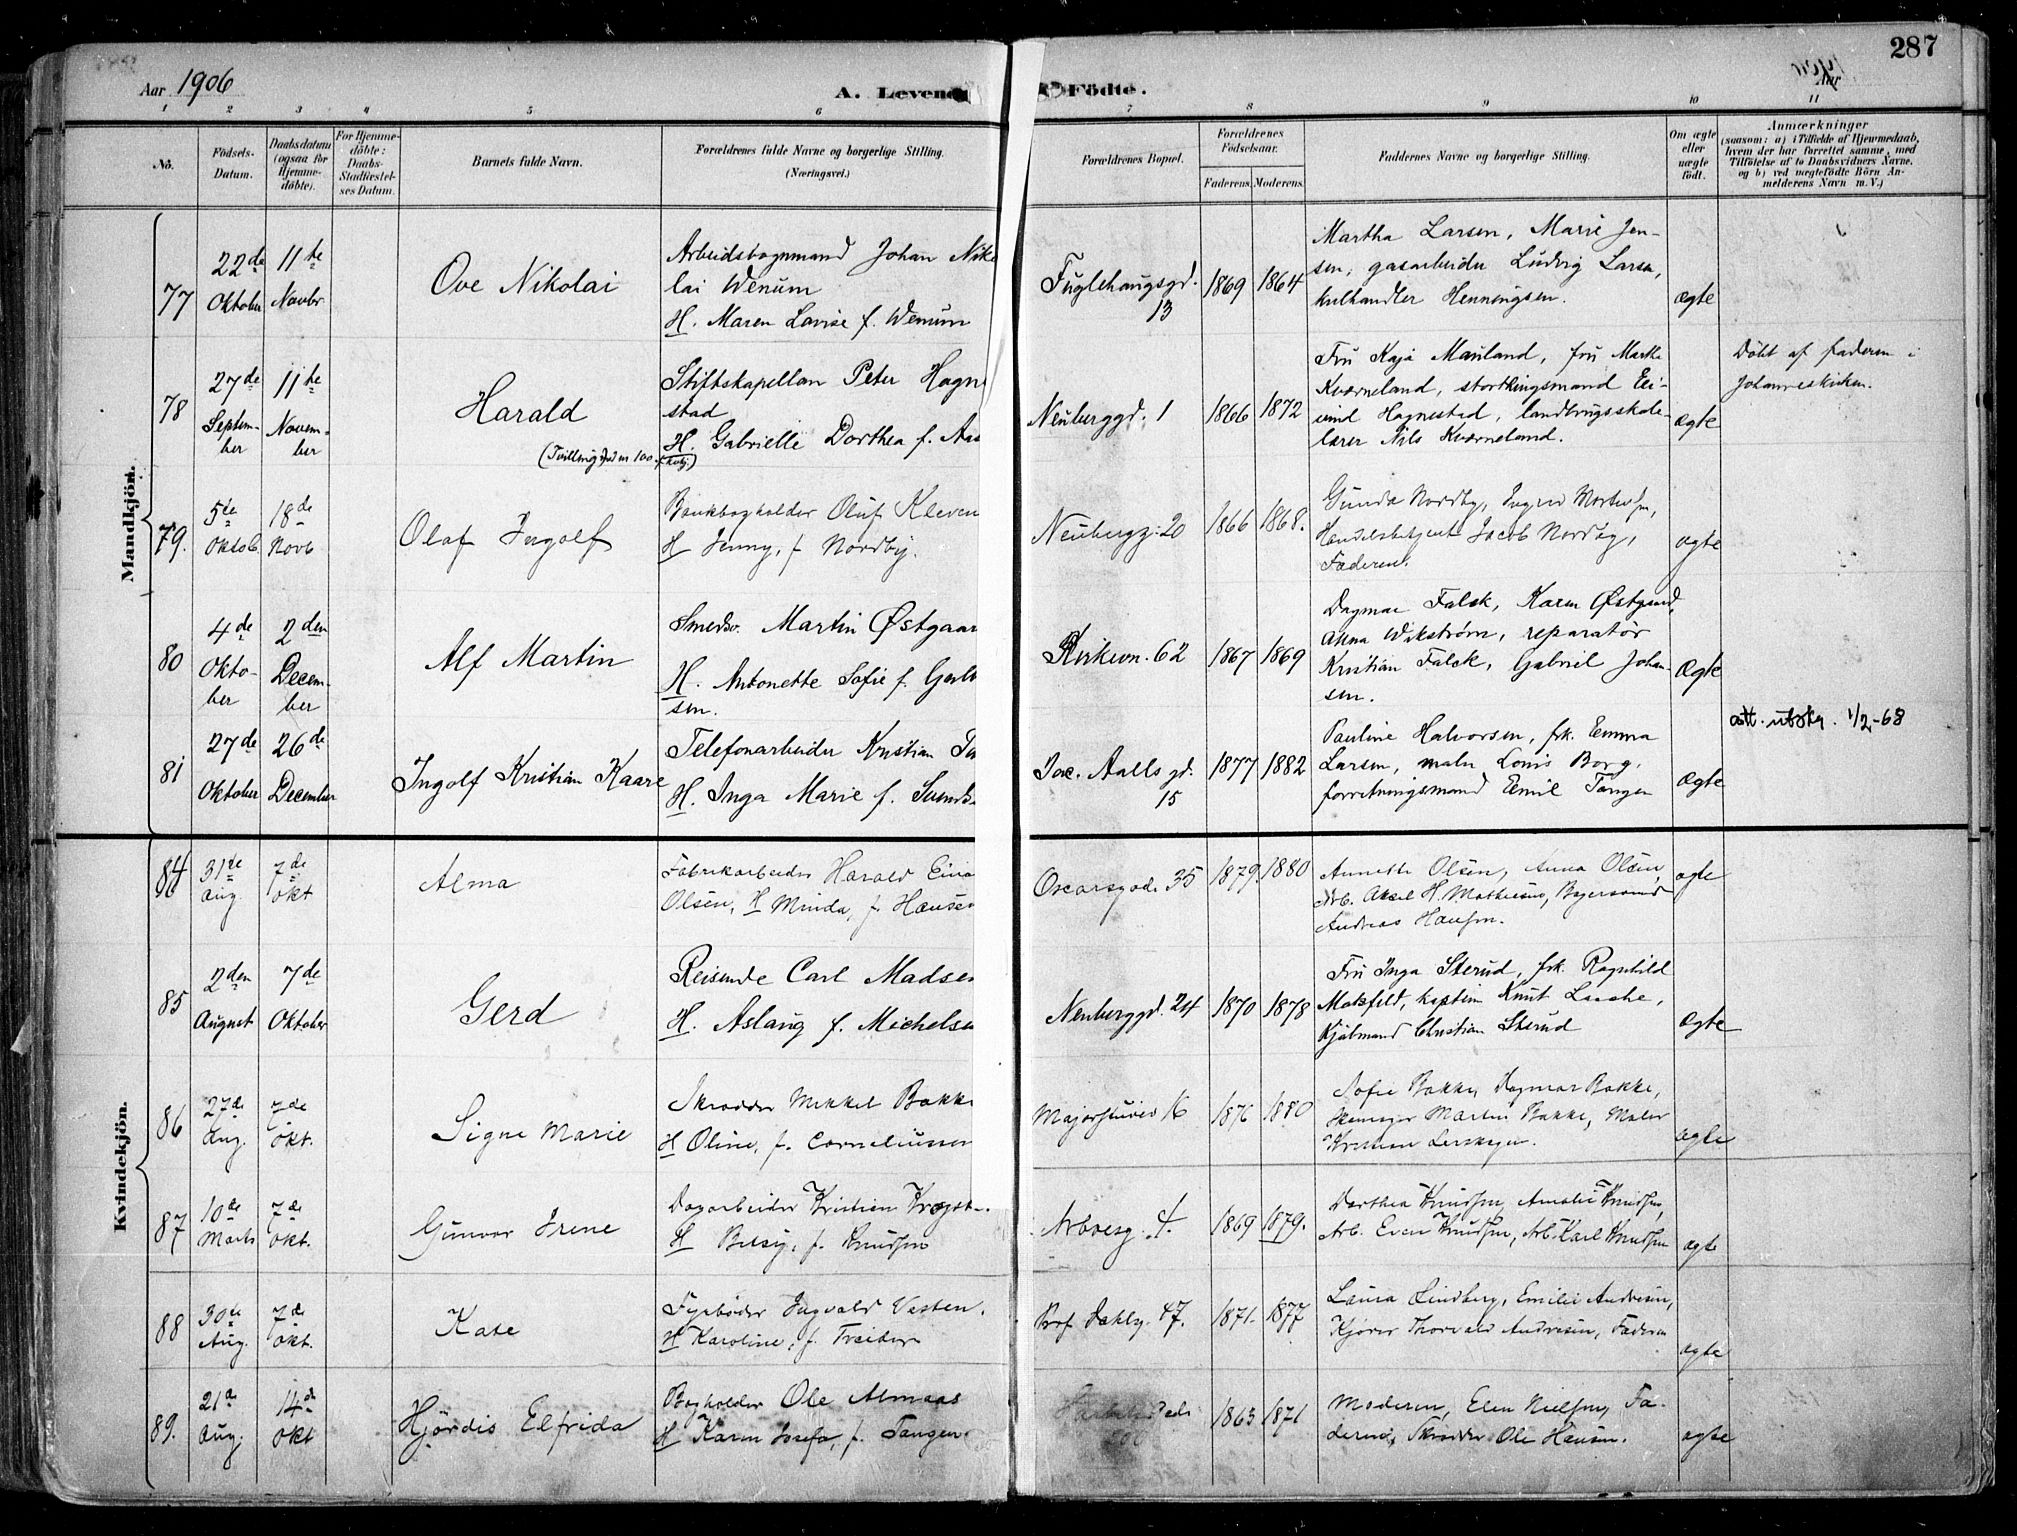 287
Aar 1906
A. Levende Födte.
Aar
1 2 3 4 5 6 7 8 9 10 11
No.
Födsels-Datum.
Daabsdatum (ogsaa for Hjemme-döbte).
For Hjemme-döbte: Daabs-Stadfæstel-ses Datum.
Barnets fulde Navn.
Forældrenes fulde Navne og borgerlige Stilling.
(Næringsvei.)
Forældrenes Bopæl.
Forældrenes Födselsaar.
Faderens. Moderens.
Faddernes Navne og borgerlige Stilling.
Om ægte eller uægte födt.
Anmærkninger
(saasom: a) i Tilfælde af Hjemmedaab, hvem der har forrettet samme, med Tilföielse af to Daabsvidners Navne. og b) ved uægtefödte Börn An-melderens Navn m. V.)
Mandkjön.
77
22de Oktober
11te Novbr
Ove Nikolai
Arbeidsvognmand Johan Niko
lai Wenum
H. Maren Lovise f. Wenum
Fuglehaugsgd. 13
1869 1864
Martha Larsen, Marie Jen-
sen, gasarbeider Ludvig Larsen,
kulhandler Henningsen.
ægte
78
27de Septem-ber
11te Novem-ber
Harald
(Tvilling med nr 100 kvkj.)
Stiftskapellan Peter Hogne
stad
H. Gabrielle Dorthea f. Aas
Neuberggd. 1
1866 1872
Fru Kaja Mauland, fru Marthe
Kværneland, storthingsmand Ei-
vind Hognestad, landbrugsskole-
lærer Nils Kværneland.
ægte
Döbt af faderen i
Johanneskirken.
79.
5te Oktob.
18de Novb
Olaf Ingolf
Bankbogholder Oluf Kleven
H Jenny, f Nordby.
Neubergg: 20
1866 1868.
Gunda Nordby, Ingrid Mortensen,
Handelsbetjent Jacob Nordby,
Faderen.
ægte
80
4de Okto-ber
2den Decem-ber
Alf Martin
Smedsv. Martin Østgaar
H. Antonette Sofie f. Gul
sen.
Kirkevn. 62
1867 1869
Dagmar Falck, Karen Østgaard,
Anna Wikstrøm, reparatør
Kristian Falck, Gabriel Johan-
sen.
Ægte
81
27de Oktober
26de December
Ingolf Kristian Kaare
Telefonarbeider Kristian
H. Inga Marie f. Svends
Jac. Aalls gd. 15
1877 1882
Pauline Halvorsen, frk. Emma
Larsen, maler Louis Borg,
forretningsmand Emil Tangen
Ægte
att. utskr. 1/2-68
Kvindekjön.
84
31te Aug.
7de Okt
Alma
Fabrikarbeider Harald Eina
Olsen, H Minda, f. Hansen
Oscarsgade 35
1879. 1880
Annette Olsen, Anna Olsen
Arb. Aksel H. Mathiesen,
Andreas Hansen.
ægte
85
2den August
7de Oktober
Gerd
Reisende Carl Madsen
H. Aslaug f. Michelsen
Neuberggd. 24
1870 1878
Fru Inga Sterud, frk. Ragnhild
Moksfelt, kaptein Knut Lasche,
Kjøbmand Christian Sterud
ægte
86
27de Aug.
7de Okt.
Signe Marie
Skrædder Mikkel Bakke
H Oline, f. Corneliussen
Majorstuvei 16
1876 1880
Sofie Bakke, Dagmar Bakke,
Martin Bakke, Maler
Kristian
ægte
87
10de Marts
7de Okt.
Gunvor Irene
Dagarbeider Kristian
H Betsy, f. Knudsen
Arboesg. 4.
1869 1879.
Dorthea Knudsen, Amalie Knudsen,
Arb. Even Knudsen, Arb. Karl Knudsen
ægte
88
30te Aug.
7de Okt.
Kate
Fyrbøder Ingvald Vesten.
H Karoline, f.
Prof. Dahlsg. 47.
1871. 1877
Laura Lindberg, Emilie Andresen,
Kjører Thorvald Andresen, Faderen
ægte
89.
21de Aug.
14de Okt
Hjørdis Elfrida
Bogholder Ole Almaas
H Karen Josefa, f. Tangen.
1863 1871
Moderen, Elen Nielsen, Fa-
deren, Skrædder Ole Hansen.
ægte